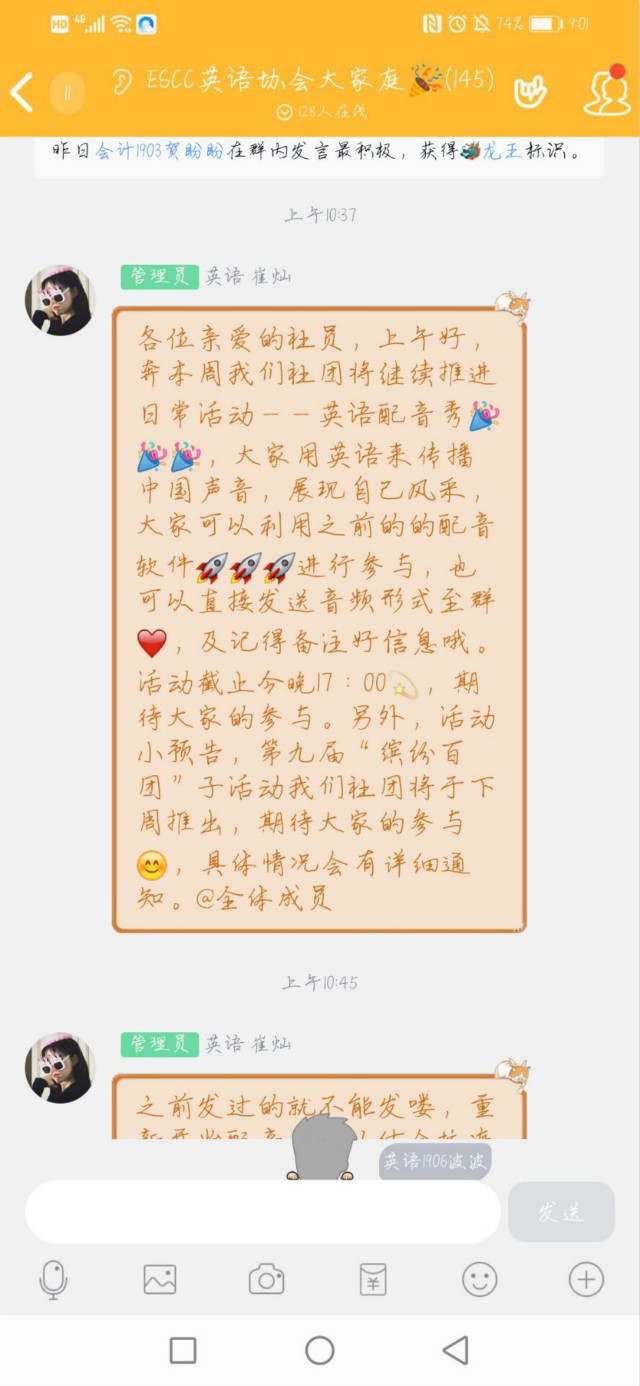 HD 4G 74% 9:01
11
ESCC英语协会大家庭🎉(145)
128人在线
昨日会计1903贺盼盼在群内发言最积极，获得🐲龙王标识。
上午10:37
管理员 英语 崔灿
各位亲爱的社员，上午好，
奔本周我们社团将继续推进
日常活动--英语配音秀🎉
🎉🎉，大家用英语来传播
中国声音，展现自己风采，
大家可以利用之前的的配音
软件🚀🚀🚀进行参与，也
可以直接发送音频形式至群
❤️，及记得备注好信息哦。
活动截止今晚17：00💫，期
待大家的参与。另外，活动
小预告，第九届“缤纷百
团”子活动我们社团将于下
周推出，期待大家的参与
😊，具体情况会有详细通
知。@全体成员
上午10:45
管理员 英语 崔灿
之前发过的就不能发喽，重
英语1906波波
发送